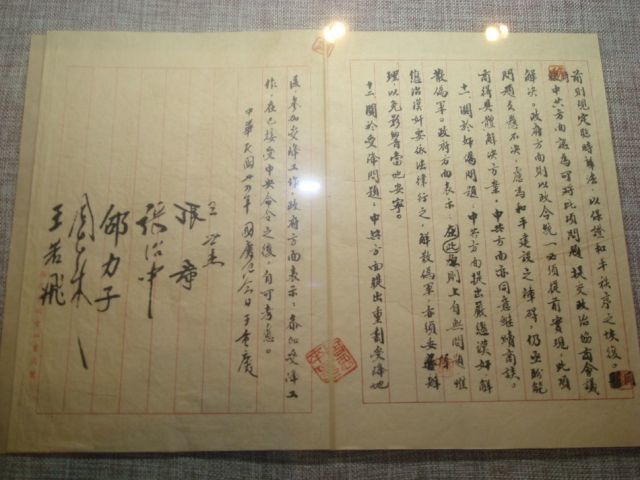 前則規定臨時辦法，以保證和平秩序之恢復。
中共方面認為可將此項問題提交政治協商會議
解決。政府方面則以政令統一必須提前實現，此項
問題久懸不決，慮為和平建設之障碍，仍亟盼能
商得具體解決方案。中共方面亦同意繼續商談。
十一、關於奸偽問題，中共方面提出嚴懲漢奸，解
散偽軍。政府方面表示：在原則上自無問題，惟
懲治漢奸要依法律行之，解散偽軍亦須妥慎辦
理，以免影響當地安寧。
十二、關於受降問題，中共方面提出重劃受降地
區，參加受降工作。政府方面表示：參加受降工
作，在已接受中央命令之後，自可考慮。
中華民國卅四年國慶紀念日于重慶
王世杰
張羣
張治中
邵力子
周恩来
王若飛